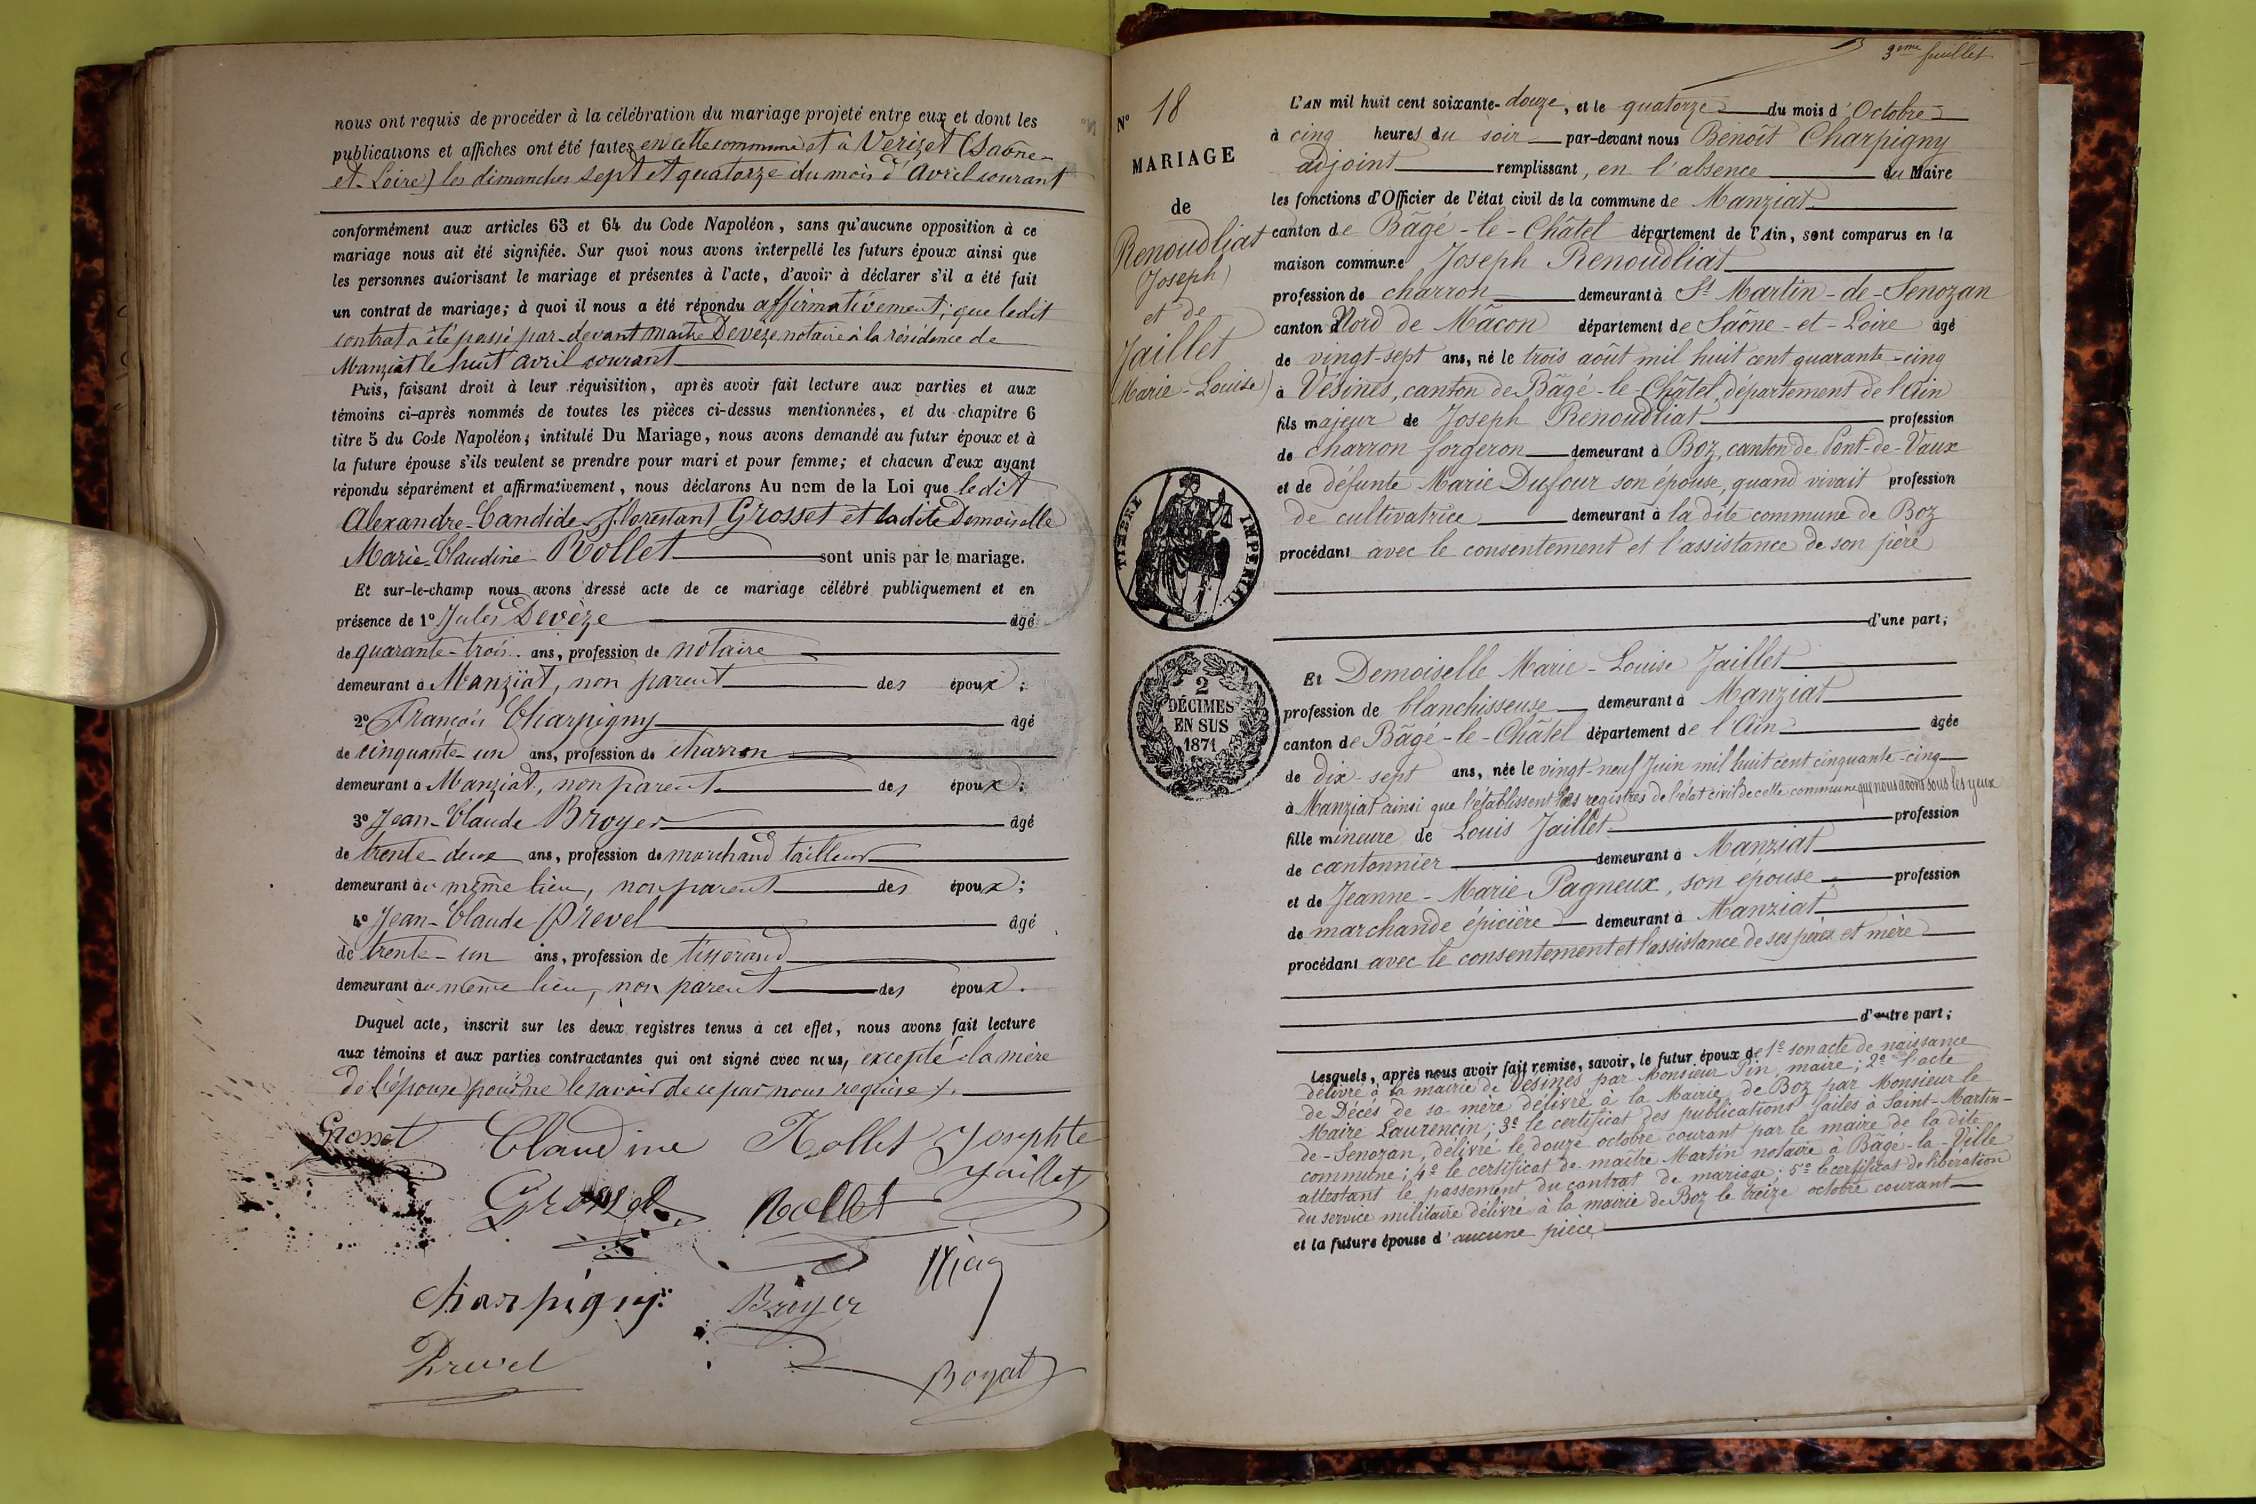 nous ont requis de procéder à la célébration du mariage projeté entre eux et dont les
publications et affiches ont été faites en cette commune et à Verizet (Saône-
et-Loire) les dimanches sept et quatorze du mois d'Avril courant
conformément aux articles 63 et 64 du Code Napoléon, sans qu'aucune opposition à ce
mariage nous ait été signifiée. Sur quoi nous avons interpellé les futurs époux ainsi que
les personnes autorisant le mariage et présentes à l'acte, d'avoir à déclarer s'il a été fait
un contrat de mariage; à quoi il nous a été répondu affirmativement; que le dit
contrat a été passé par-devant maître Devèze notaire à la résidence de
Manziat le huit avril courant
Puis, faisant droit à leur réquisition, après avoir fait lecture aux parties et aux
témoins ci-après nommés de toutes les pièces ci-dessus mentionnées, et du chapitre 6
titre 5 du Code Napoléon, intitulé Du Mariage, nous avons demandé au futur époux et à
la future épouse s'ils veulent se prendre pour mari et pour femme; et chacun d'eux ayant
répondu séparément et affirmativement, nous déclarons Au nom de la Loi que le dit
Alexandre-Candide-Florestant Grosset et la dite Demoiselle
Marie-Claudine Rollet sont unis par le mariage.
Et sur-le-champ nous avons dressé acte de ce mariage célébré publiquement et en
présence de 1º Jules Devèze âgé
de quarante-trois ans, profession de notaire
demeurant à Manziat, non parent des époux;
2º François Charpigny âgé
de cinquante-un ans, profession de charron
demeurant à Manziat, non parent des époux;
3º Jean-Claude Broyer âgé
de trente-deux ans, profession de marchand tailleur
demeurant au même lieu, non parent des époux;
4º Jean-Claude Prevel âgé
de trente-un ans, profession de tisserand
demeurant au même lieu, non parent des époux.
Duquel acte, inscrit sur les deux registres tenus à cet effet, nous avons fait lecture
aux témoins et aux parties contractantes qui ont signé avec nous, excepté la mère
de l'épouse pour ne le savoir de ce par nous requise.
Grosset Claudine Rollet Josephte
Jaillet
Grosset Rollet
Charpigny Broyer
Prevel Boyat
3eme feuillet
Nº 18
MARIAGE
de
Renoudliat
(Joseph)
et de
Jaillet
(Marie-Louise)
TIMBRE IMPERIAL
2
DÉCIMES
EN SUS
1871
L'AN mil huit cent soixante-douze, et le quatorze du mois d'Octobre
à cinq heures du soir par-devant nous Benoît Charpigny
adjoint remplissant, en l'absence du Maire
les fonctions d'Officier de l'état civil de la commune de Manziat
canton de Bâgé-le-Châtel département de l'Ain, sont comparus en la
maison commune Joseph Renoudliat
profession de charron demeurant à St Martin-de-Senozan
canton Nord de Mâcon département de Saône-et-Loire âgé
de vingt-sept ans, né le trois août mil huit cent quarante-cinq
à Vésines, canton de Bâgé-le-Châtel, département de l'Ain
fils majeur de Joseph Renoudliat profession
de charron forgeron demeurant à Boz, canton de Pont-de-Vaux
et de défunte Marie Dufour son épouse, quand vivait profession
de cultivatrice demeurant à la dite commune de Boz
procédant avec le consentement et l'assistance de son père
d'une part;
Et Demoiselle Marie-Louise Jaillet
profession de blanchisseuse demeurant à Manziat
canton de Bâgé-le-Châtel département de l'Ain âgée
de dix-sept ans, née le vingt-neuf Juin mil huit cent cinquante-cinq
à Manziat ainsi que l'établissent les registres de l'état civil de cette commune que nous avons sous les yeux
fille mineure de Louis Jaillet profession
de cantonnier demeurant à Manziat
et de Jeanne-Marie Pagneux, son épouse, profession
de marchande épicière demeurant à Manziat
procédant avec le consentement et l'assistance de ses père et mère
d'autre part;
Lesquels, après nous avoir fait remise, savoir, le futur époux de 1º son acte de naissance
délivré à la mairie de Vésines par Monsieur Pin, maire; 2º l'acte
de Décès de sa mère délivré à la Mairie de Boz par Monsieur le
Maire Laurencin; 3º le certificat des publications faites à Saint-Martin-
de-Senozan, délivré le douze octobre courant par le maire de la dite
commune; 4º le certificat de maître Martin notaire à Bâgé-la-Ville
attestant le passement du contrat de mariage; 5º le certificat de libération
du service militaire délivré à la mairie de Boz le treize octobre courant
et la future épouse d'aucune pièce